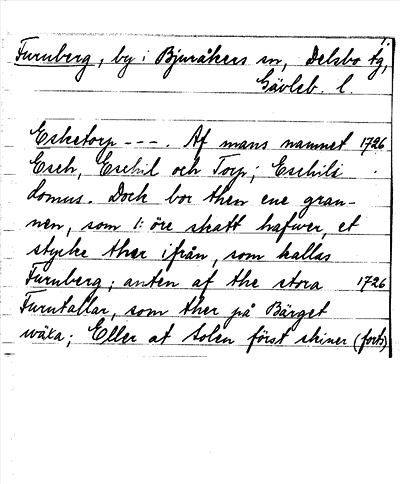 1.
Furuberg, by i Bjuråkers sn, Delsbo tg,
Gävleb. l.
Esketorp ---. Af mans namnet 1726
Esch, Eschil och Torp; Eschili
domus. Dock bor then ene gran-
nen, som 1: öre skatt hafwer, et
stycke ther ifrån, som kallas
Furuberg; anten af the stora 1726
Furutallar, som ther på Bärget
wäxa; Eller at solen först skiner (forts)